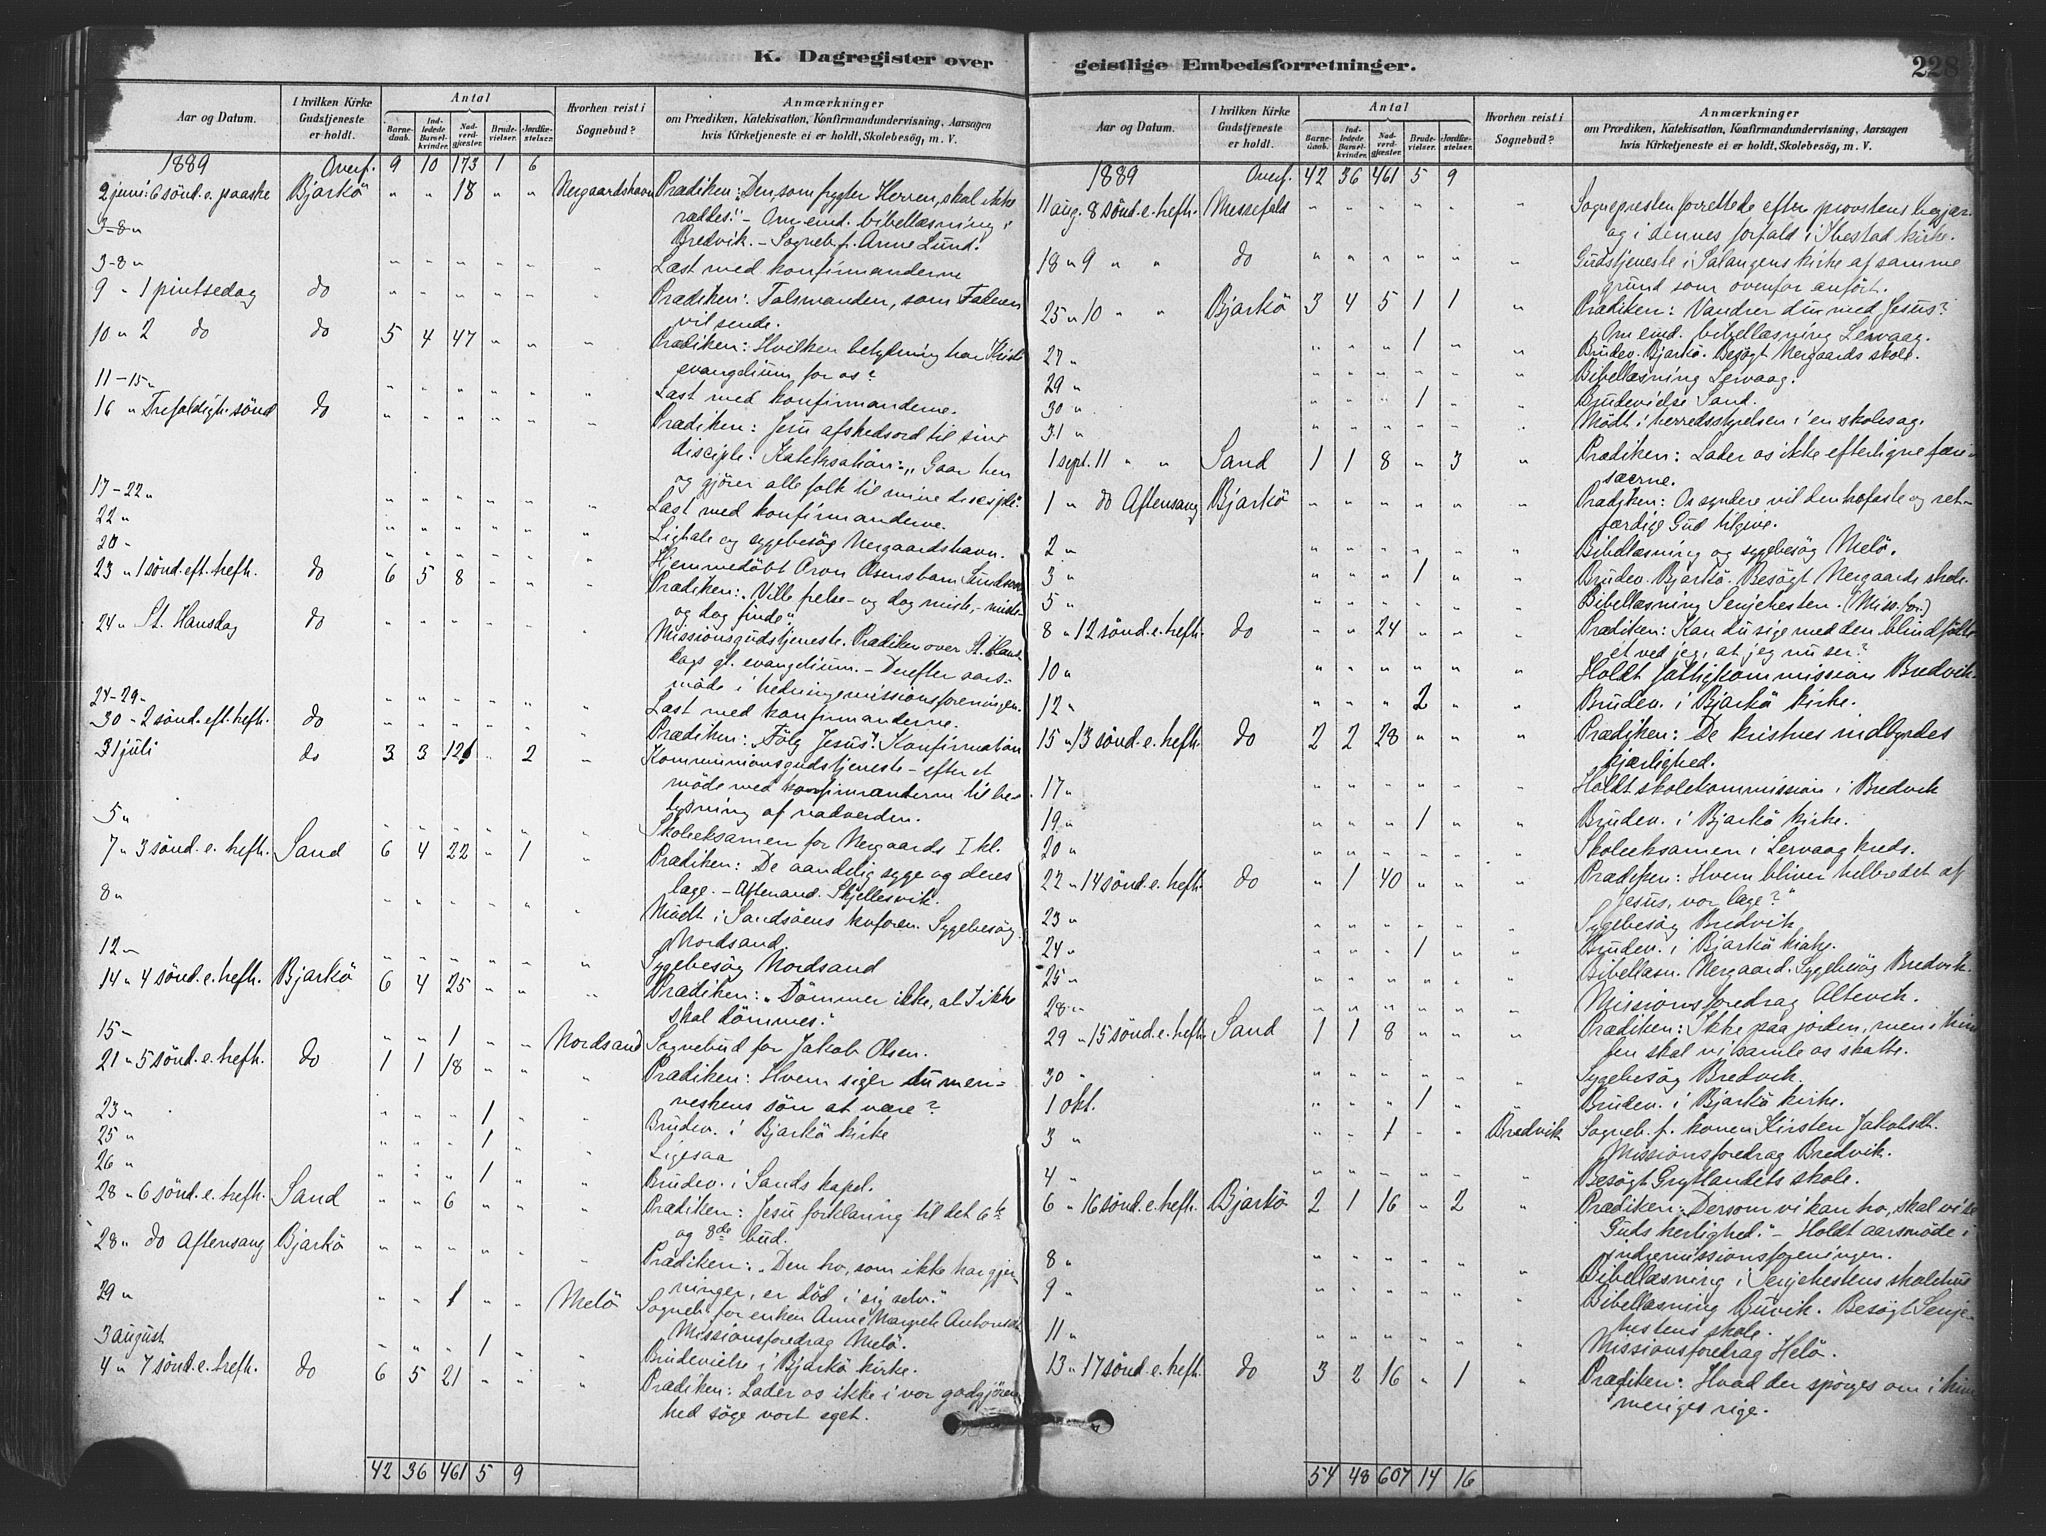 K. Dagregister over
geistlige Embedsforretninger.
228
Aar og Datum.
I hvilken Kirke Gudstjeneste er holdt.
Antal
Barnedaab.
Indledede Barselkvinder.
Nadverdgjæster.
Brudevielser.
Jordfæstelser.
Hvorhen reist i Sognebud?
Anmærkninger
om Prædiken, Katekisation, Konfirmandundervisning, Aarsagen
hvis Kirketjeneste ei er holdt, Skolebesøg, m. V.
1889 Overf. 9 10 173 1 6
2 juni 6 sönd. e. paaske Bjarkö " " 18 " " Nergaardshavn Prædiken: "Den, som frygter Herren, skal ikke
ræddes." - Om emd. bibellæsning i
Bredvik. - Sogneb. f. Anne Lund.
3-8 "
3-8 " Læst med konfirmanderne
9 " 1 pintsedag do Prædiken: Talsmanden, som Faderen
vil sende.
10 " 2 do do 5 4 47 " " Prædiken: Hvilken betydning har Kristi
evangelium for os?
11-15 " Læst med konfirmanderne.
16 " Trefoldigh. sönd do Prædiken: Jesu afskedsord til sine
disciple. Katekisation: "Gaar hen
og gjörer alle folk til mine disciple."
17-22 " Læst med konfirmanderne.
22 " Ligtale og sygebesög Nergaardshavn.
20 " Hjemmedöbt Aron Olsens barn
23 " 1 sönd. eft. trefh. do 6 5 8 " " Prædiken: "Ville frelse - og dog miste, - miste
og dog finde".
24 " St. Hansdag do Missionsgudstjeneste. Prædiken over St. Hans-
dags gl. evangelium. - Derefter aars-
möde i hedningemissionsforeningen.
24-29 " Læst med konfirmanderne.
30 - 2 sönd. eft. trefh. do Prædiken: "Fölg Jesus". Konfirmation
31 juli do 3 3 121 " 2 Kommunionsgudstjeneste - efter et
möde med konfirmanderne til be-
lysning af nadverden.
5 " Skoleeksamen for Nergaards I kl.
7 " 3 sönd. e. trefh. Sand 6 4 22 " 1 Prædiken: De aandelig syge og deres
læge. - Aftenand. Skjellesvik.
8 " Mödt i Sandsöens kvforen. Sygebesög
Nordsand.
12 " Sygebesög Nordsand
14 " 4 sönd. e. trefh. Bjarkö 6 4 25 " " Prædiken: "Dömmer ikke, at I ikke
skal dömmes."
15 - " " 1 " " Nordsand Sognebud for Jakob Olsen.
21 " 5 sönd. e. trefh. do 1 1 18 " " Prædiken: Hvem siger du men-
neskens sön at være?
23 " " " " 1 " Brudev. i Bjarkö kirke
25 " " " " 1 " Ligesaa
26 " " " " 1 " Brudev. i Sands kapel.
28 " 6 sönd. e. trefh. Sand " " 6 " " Prædiken: Jesu forklaring til det 6te
og 8de bud.
28 " do Aftensang Bjarkö Prædiken: "Den tro, som ikke har gjer-
ninger, er död i sig selv."
29 " " " 1 " " Melö Sogneb. for enken Anne Margrete Antonsdt.
Missionsforedrag Melö.
3 august " " " 1 " Brudevielse i Bjarkö kirke.
4 " 7 sönd. e. trefh. do 6 5 21 " " Prædiken: Lader os ikke i vor godgjören-
hed söge vort eget.
42 36 461 5 9
Aar og Datum.
I hvilken Kirke Gudstjeneste er holdt.
Antal
Barnedaab.
Indledede Barselkvinder.
Nadverdgjæster.
Brudevielser.
Jordfæstelser.
Hvorhen reist i Sognebud?
Anmærkninger
om Prædiken, Katekisation, Konfirmandundervisning, Aarsagen
hvis Kirketjeneste ei er holdt, Skolebesøg, m. V.
1889 Overf. 42 36 461 5 9
11 aug. 8 sönd. e. trefh. Messefald Sognepresten forrettede efter provstens begjær-
og i dennes forfald i Ibestad kirke.
18 " 9 " " do Gudstjeneste i Salangens kirke af samme
grund som ovenfor anfört.
25 " 10 " " Bjarkö 3 4 5 1 1 Prædiken: Vandrer du med Jesus?
Om emd. bibellæsning Lervaag.
27 " " " " 1 " Brudev. Bjarkö. Besögt Nergaards skole.
29 " Bibellæsning Lervaag.
30 " " " " 1 " Brudevielse Sand.
31 " Mödt i herredsstyrelsen i en skolesag.
1 sept. 11 " " Sand 1 1 8 " 3 Prædiken: Lader os ikke efterligne fari-
sæerne.
1 " do Aftensang Bjarkö Prædiken: Os syndere vil den trofaste og ret-
færdige Gud tilgive.
2 " Bibellæsning og sygebesög Melö.
3 " " " " 1 " Brudev. Bjarkö. Besögt Nergaards skole.
5 " Bibellæsning Senjehesten. (Miss. for.)
8 " 12 sönd. e. trefh. do " " 24 " " Prædiken: Kan du sige med den blindfödte:
et ved jeg, at jeg nu ser?
10 " Holdt fattigkommission Bredvik.
12 " " " " 2 " Brudev. i Bjarkö kirke.
15 " 13 sönd. e. trefh. do 2 2 28 " " Prædiken: De kristnes indbyrdes
kjærlighed.
17 " Holdt skolekommission i Bredvik
19 " " " " 1 " Brudev. i Bjarkö kirke.
20 " Skoleeksamen i Lervaag kreds.
22 " 14 sönd. e. trefh. do " 1 40 " " Prædiken: Hvem bliver helbredet af
Jesus, vor læge?
23 " Sygebesög Bredvik
24 " " " " 1 " Brudev. i Bjarkö kirke.
25 " Bibellæsn. Nergaard. Sygebesög Bredvik.
28 " Missionsforedrag Altevik.
29 " 15 sönd. e. trefh. Sand 1 1 8 " " Prædiken: Ikke paa jorden, men i him-
len skal vi samle os skatte.
30 " Sygebesög Bredvik.
1 okt. " " " 1 " Brudev. i Bjarkö kirke.
3 " " " 1 " " Bredvik Sogneb. f. konen Kirsten Jakobsdt.
Missionsforedrag Bredvik.
4 " Besögt Grytlandets skole.
6 " 16 sönd. e. trefh. Bjarkö 2 1 16 " 2 Prædiken: "Dersom vi kan tro, skal vi se
Guds herlighed." - Holdt aarsmöde i
indremissionsforeningen.
8 " Bibellæsning i Senjehestens skolehus
9 " Bibellæsning Buvik. Besögt Senje-
hestens skole.
11 " Missionsforedrag Helö.
13 " 17 sönd. e. trefh. do 3 2 16 " 1 Prædiken: Hvad der spörges om i him-
meriges rige.
54 48 607 14 16